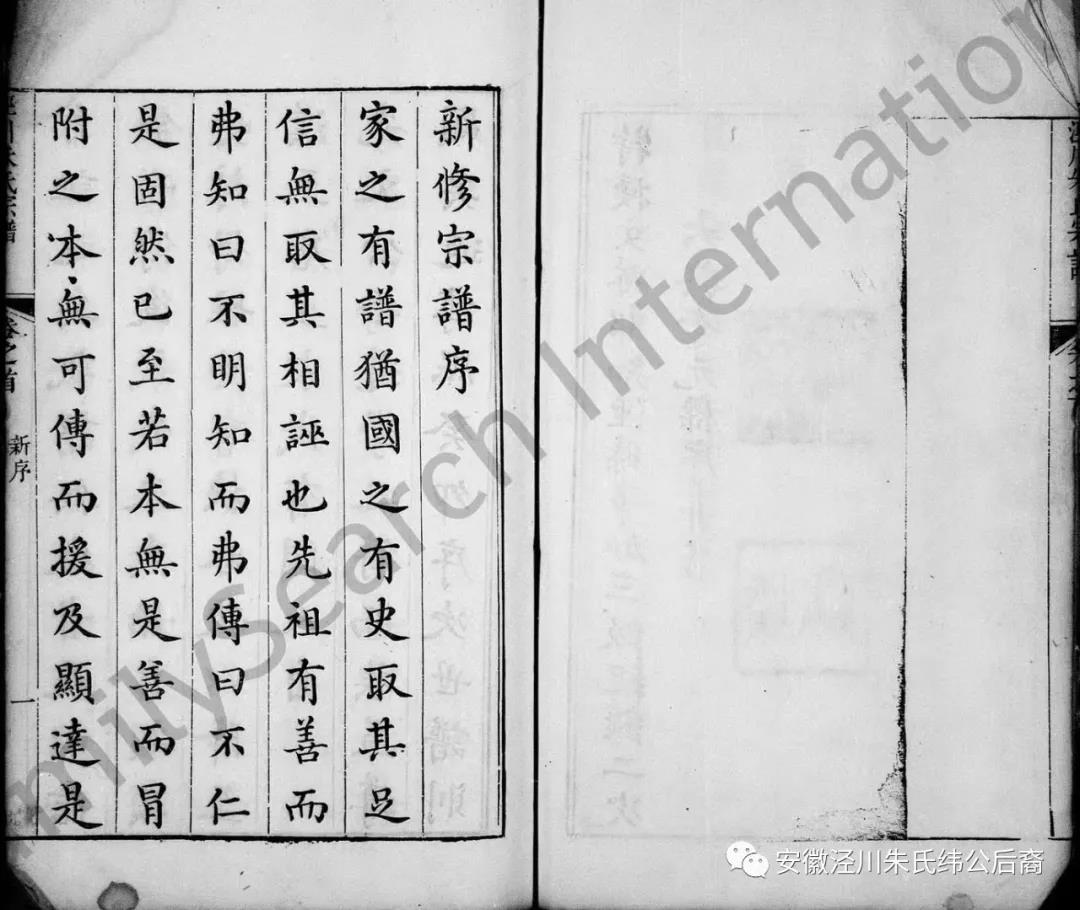 新修宗譜序
家之有譜猶國之有史取其足
信無取其相誣也先祖有善而
弗知曰不明知而弗傳曰不仁
是固然已至若本無是善而冒
附之本無可傳而援及顯達是
川朱氏宗譜
卷之首
新序
一
milySearch Internation
安徽泾川朱氏纬公后裔